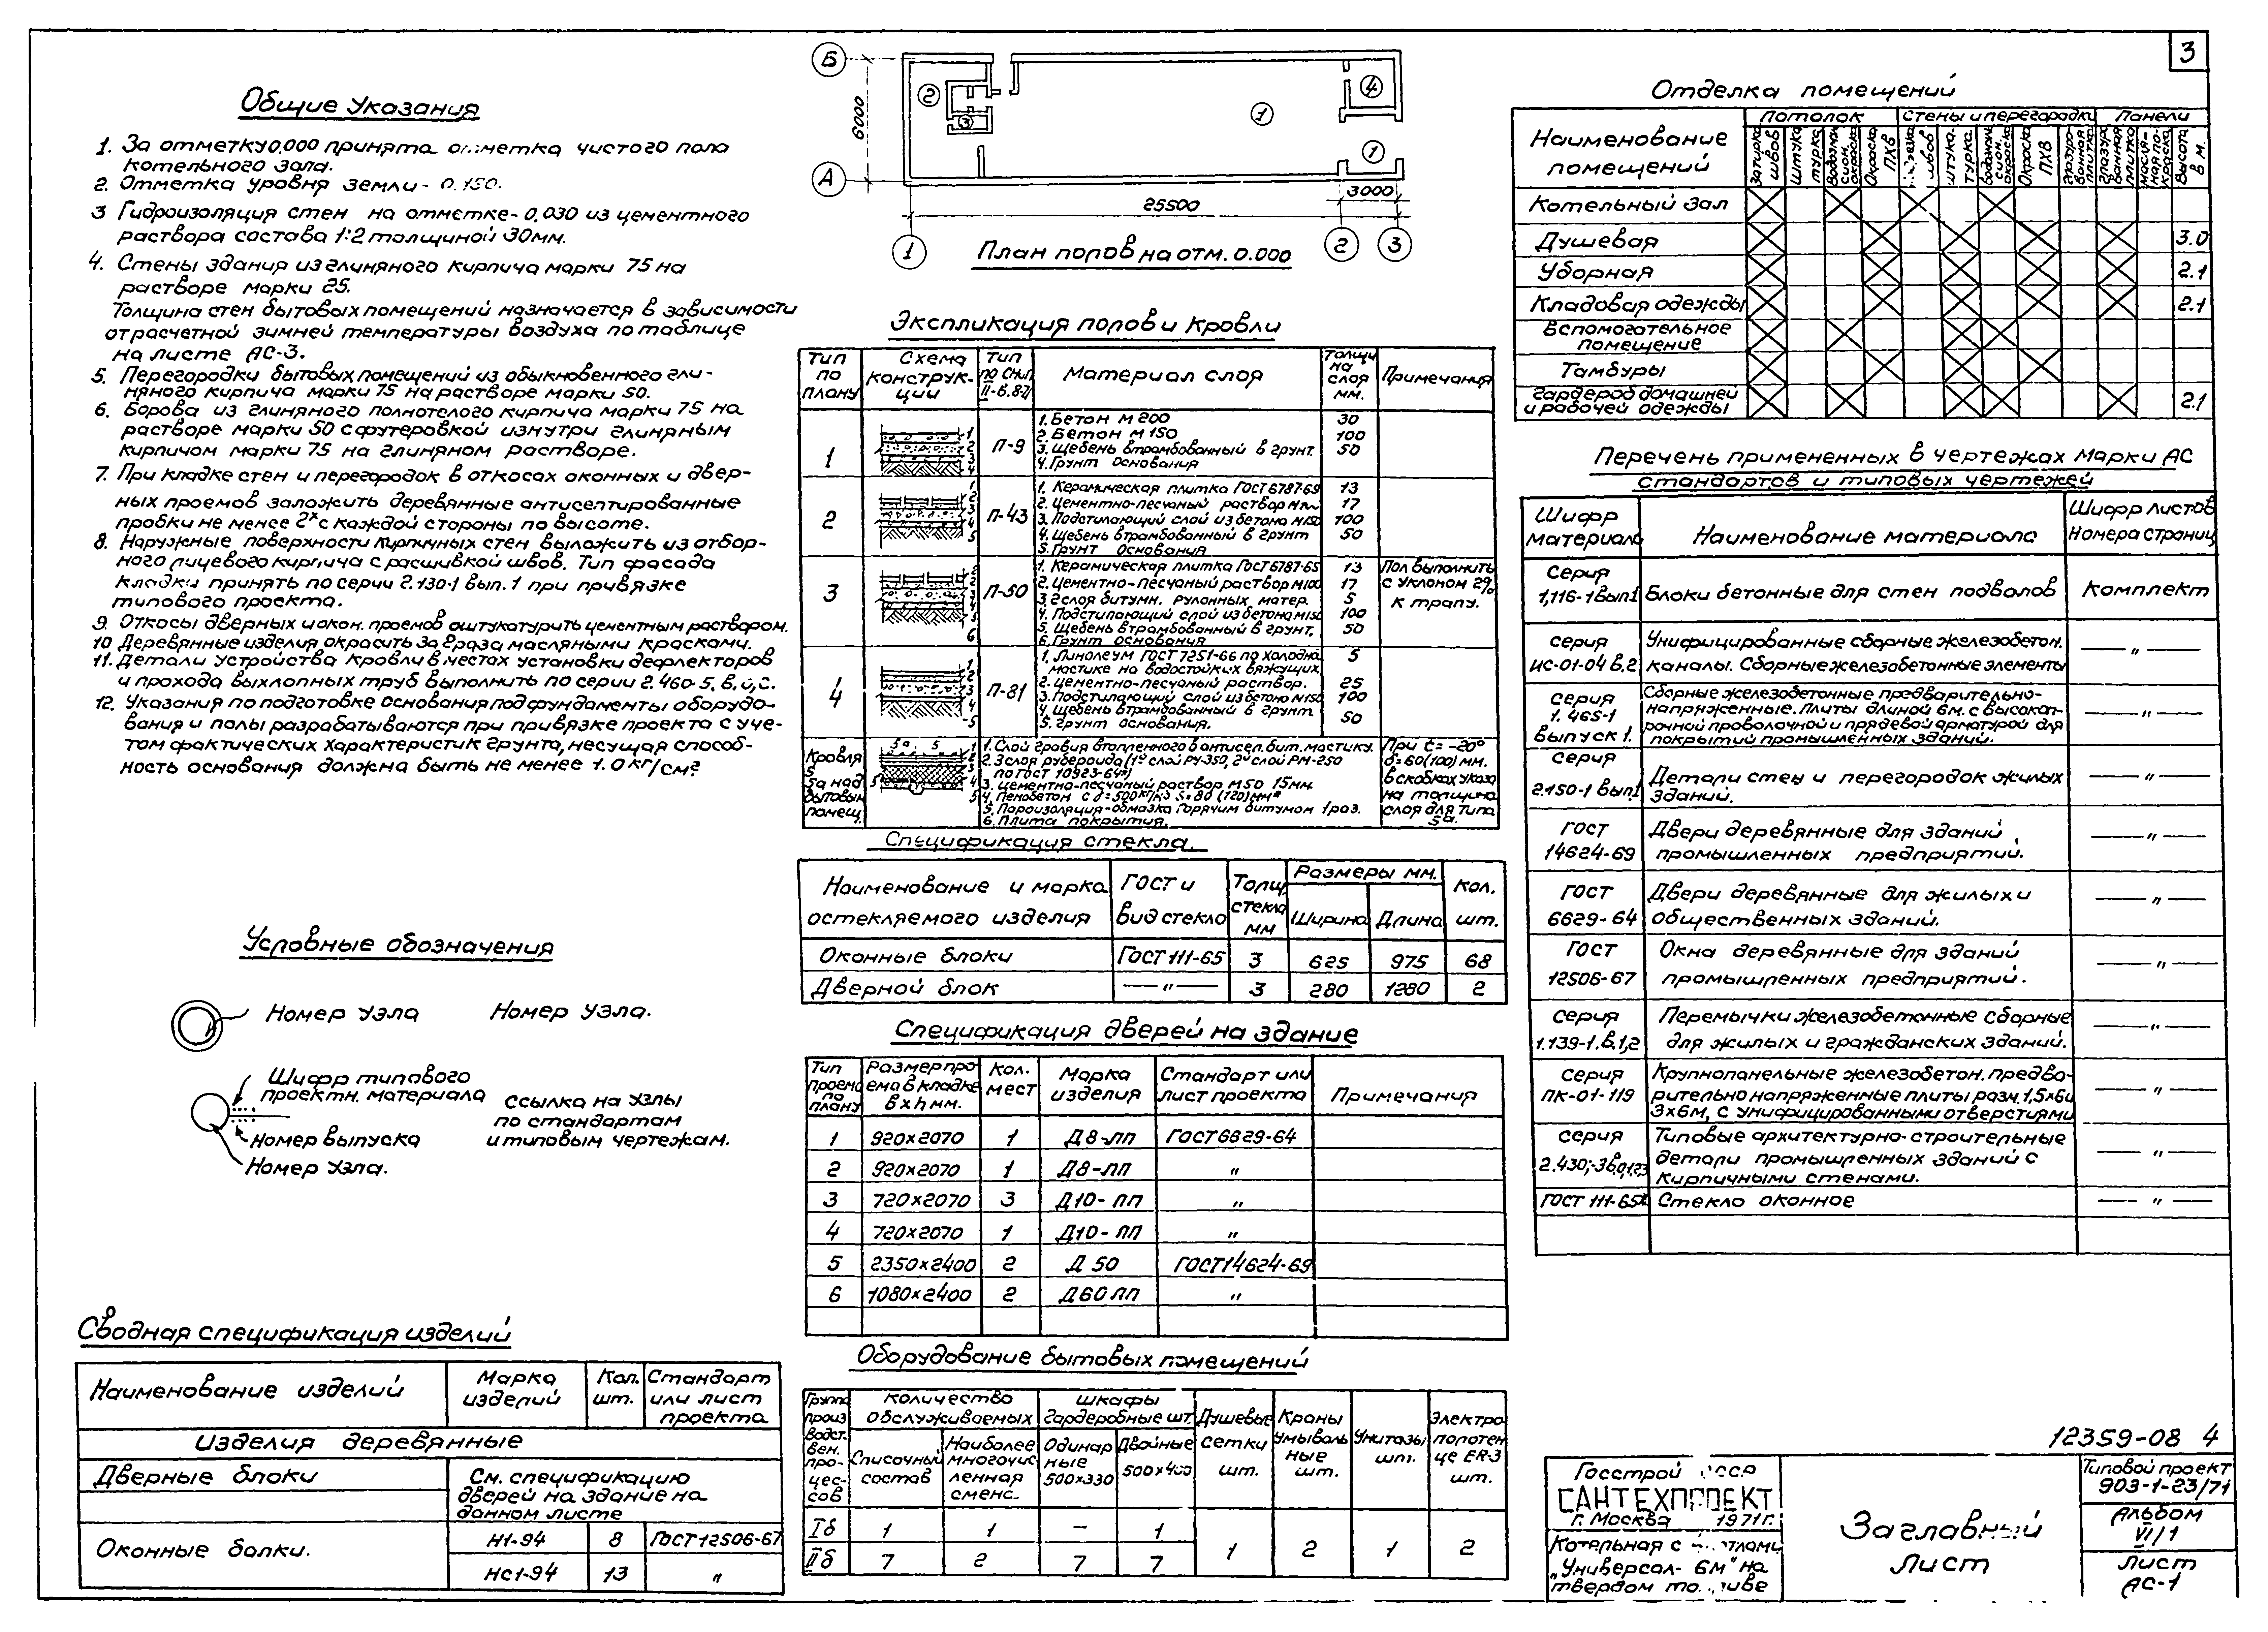 3
Общие указания
1. За отметку 0,000 принята отметка чистого пола
котельного зала.
2. Отметка уровня земли - 0.150.
3 Гидроизоляция стен на отметке - 0,030 из цементного
раствора состава 1:2 толщиной 30мм.
4. Стены здания из глиняного кирпича марки 75 на
растворе марки 25.
Толщина стен бытовых помещений назначается в зависимости
от расчетной зимней температуры воздуха по таблице
на листе АС-3.
5. Перегородки бытовых помещений из обыкновенного гли-
няного кирпича марки 75 на растворе марки 50.
6. Борова из глиняного полнотелого кирпича марки 75 на
растворе марки 50 с футеровкой изнутри глиняным
кирпичом марки 75 на глиняном растворе.
7. При кладке стен и перегородок в откосах оконных и двер-
ных проемов заложить деревянные антисептированные
пробки не менее 2х с каждой стороны по высоте.
8. Наружные поверхности кирпичных стен выложить из отбор-
ного лицевого кирпича с расшивкой швов. Тип фасада
кладки принять по серии 2.130-1 вып. 1 при привязке
типового проекта.
9. Откосы дверных и окон. проемов оштукатурить цементным раствором.
10 Деревянные изделия окрасить за 2 раза масляными красками.
11. Детали устройства кровли в местах установки дефлекторов
и прохода выхлопных труб выполнить по серии 2.460-5.
12. Указания по подготовке основания под фундаменты оборудо-
вания и полы разрабатываются при привязке проекта с уче-
том фактических характеристик грунта, несущая способ-
ность основания должна быть не менее 1.0 кг/см²
Условные обозначения
Номер узла Номер узла.
Шифр типового
проектн. материала
ссылка на узлы
по стандартам
и типовым чертежам.
Номер выпуска
Номер узла.
Сводная спецификация изделий
Наименование изделий Марка изделий Кол. шт. Стандарт или лист проекта
Изделия деревянные
Дверные блоки См. спецификацию
дверей на здание на
данном листе
Оконные балки. Н1-94 8 ГОСТ 12506-67
НС1-94 13 "
Б
А
6000
2
3
1
4
1
3000
25500
1 2 3
План полов на отм. 0.000
Экспликация полов и кровли
Тип по плану Схема конструкции Тип по СНиП II-В.8-71 Материал слоя Толщина слоя мм. Примечания
1 П-9
1. Бетон М 200 30
2. Бетон М 150 100
3. Щебень втрамбованный в грунт. 50
4. Грунт основания
2 П-43
1. Керамическая плитка ГОСТ 6787-69 13
2. Цементно-песчаный раствор 17
3. Подстилающий слой из бетона М150 100
4. Щебень втрамбованный в грунт 50
5. Грунт основания
3 П-50
1. Керамическая плитка ГОСТ 6787-65 13
2. Цементно-песчаный раствор М100 17
3. 2 слоя битумн. рулонных матер. 5
4. Подстилающий слой из бетона М150 100
5. Щебень втрамбованный в грунт. 50
6. Грунт основания
Пол выполнить
с уклоном 2%
к трапу.
4 П-81
1. Линолеум ГОСТ 7251-66 по холодна 5
мастике на водостойких вяжущих
2. Цементно-песчаный раствор. 25
3. Подстилающий слой из бетона М150 100
4. Щебень втрамбованный в грунт 50
5. Грунт основания.
Кровля
5
5а над
бытовым
помещ.
1. Слой гравия втопленного в антисеп. бит. мастику.
2. 3 слоя рубероида (1й слой РУ-350, 2й слой РМ-250
по ГОСТ 10923-64*)
3. Цементно-песчаный раствор М50 15мм
4. Пенобетон с γ=500кг/м3 δ=80 (120) мм*
5. Пароизоляция-обмазка горячим битумом 1 раз.
6. Плита покрытия.
При t = -20°
δ=60(100) мм.
в скобках указа
на толщина
слоя для типа
5а.
Спецификация стекла.
Наименование и марка остекляемого изделия ГОСТ и вид стекло Толщ. стекла мм Размеры мм. Ширина Длина Кол. шт.
Оконные блоки ГОСТ 111-65 3 625 975 68
Дверной блок —"— 3 280 1280 2
Спецификация дверей на здание
Тип проема по плану Размер проема в кладке в х h мм. Кол. мест Марка изделия Стандарт или лист проекта Примечания
1 920×2070 1 Д8-лп ГОСТ 6629-64
2 920×2070 1 Д8-ЛП "
3 720×2070 3 Д10-ЛП "
4 720×2070 1 Д10-ЛП "
5 2350×2400 2 Д 50 ГОСТ 14624-69
6 1080×2400 2 Д60ЛП "
Оборудование бытовых помещений
Группа производствен. процессов Количество обслуживаемых Списочный состав Наиболее многочисленная сменс. шкафы гардеробные шт. Одинарные 500×330 Двойные Душевые сетки шт. Краны умывальные шт. Унитазы шт. Электрополотенце ЕR-3 шт.
Iб 1 1 — 1
IIб 7 2 7 7 1 2 1 2
Отделка помещений
Наименование помещений Потолок Стены и перегородки Панели
Затирка швов Штукатурка Водоэмульсион. окраска Окраска ПХВ швов штукатурка Водоэмульсион. окраска Окраска ПХВ глазурованная плитка глазурованная плитка масляная покраска Высота в м.
Котельный зал
Душевая 3.0
Уборная 2.1
Кладовая одежды 2.1
Вспомогательное
помещение
Тамбуры
Гардероб домашней
и рабочей одежды 2.1
Перечень примененных в чертежах марки АС
стандартов и типовых чертежей
Шифр материала Наименование материала Шифр листов Номера страниц
Серия 1,116-1 вып1 Блоки бетонные для стен подвалов Комплект
серия ИС-01-04 в.2 Унифицированные сборные железобетон.
каналы. Сборные железобетонные элементы —"—
Серия 1.465-1 выпуск 1. Сборные железобетонные предварительно-
напряженные. плиты длиной 6м. с высокоп-
рочной проволочной и прядевой арматурой для
покрытий промышленных зданий. —"—
серия 2.150-1 вып.1 Детали стен и перегородок жилых
зданий. —"—
ГОСТ 14624-69 Двери деревянные для зданий
промышленных предприятий. —"—
ГОСТ 6629-64 Двери деревянные для жилых и
общественных зданий. —"—
ГОСТ 12506-67 Окна деревянные для зданий
промышленных предприятий. —"—
серия 1.139-1.в.1,2 Перемычки железобетонные сборные
для жилых и гражданских зданий. —"—
серия ПК-01-119 Крупнопанельные железобетон. предва-
рительно напряженные плиты разм. 1,5×6и
3×6м, с унифицированными отверстиями —"—
серия Типовые архитектурно-строительные
детали промышленных зданий с
кирпичными стенами. —"—
ГОСТ 111-65* Стекло оконное —"—
12359-08 4
Госстрой СССР
САНТЕХПРОЕКТ
г. Москва 1971г.
Котельная с котлами
„Универсал-6м" на
твердом топливе
Заглавный
лист
Типовой проект
903-1-23/71
Альбом
VI/1
лист
АС-1